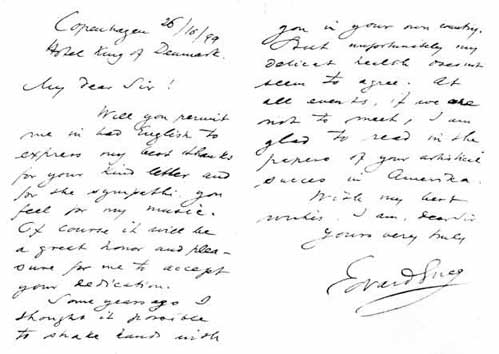 Copenhagen 26/10/99
Hotel King of Denmark.
My dear Sir!
Will you permit
me in bad English to
express my best thanks
for your kind letter and
for the sympathi you
feel for my music.
Of course it will be
a great honor and plea-
sure for me to accept
your dedication.
Some years ago I
thought it possible
to shake hands with
you in your own country.
But unfortunately my
delicat health does not
seem to agree. At
all events, if we are
not to meet, I am
glad to read in the
papers of your artistical
succes in Amerika.
With my best
wishes I am, dear Sir
Yours very truly
Edvard Grieg